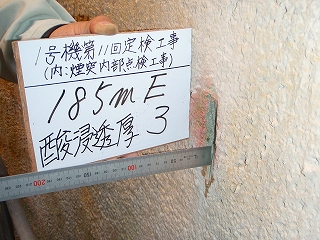 1号機第11回定検工事
(内:煙突内部点検工事)
185m E
酸浸透厚 3
200